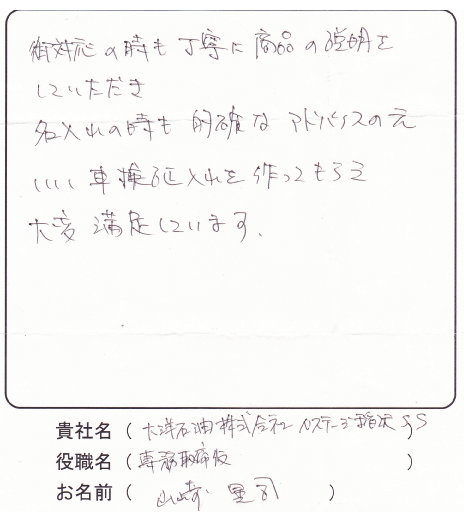 御対応の時も丁寧に商品の説明を
していただき
名入れの時も的確なアドバイスの元
いい車検証入れを作ってもらえ
大変満足しています。
貴社名（大洋石油株式会社 SS）
役職名（専務取締役）
お名前（山崎 ）